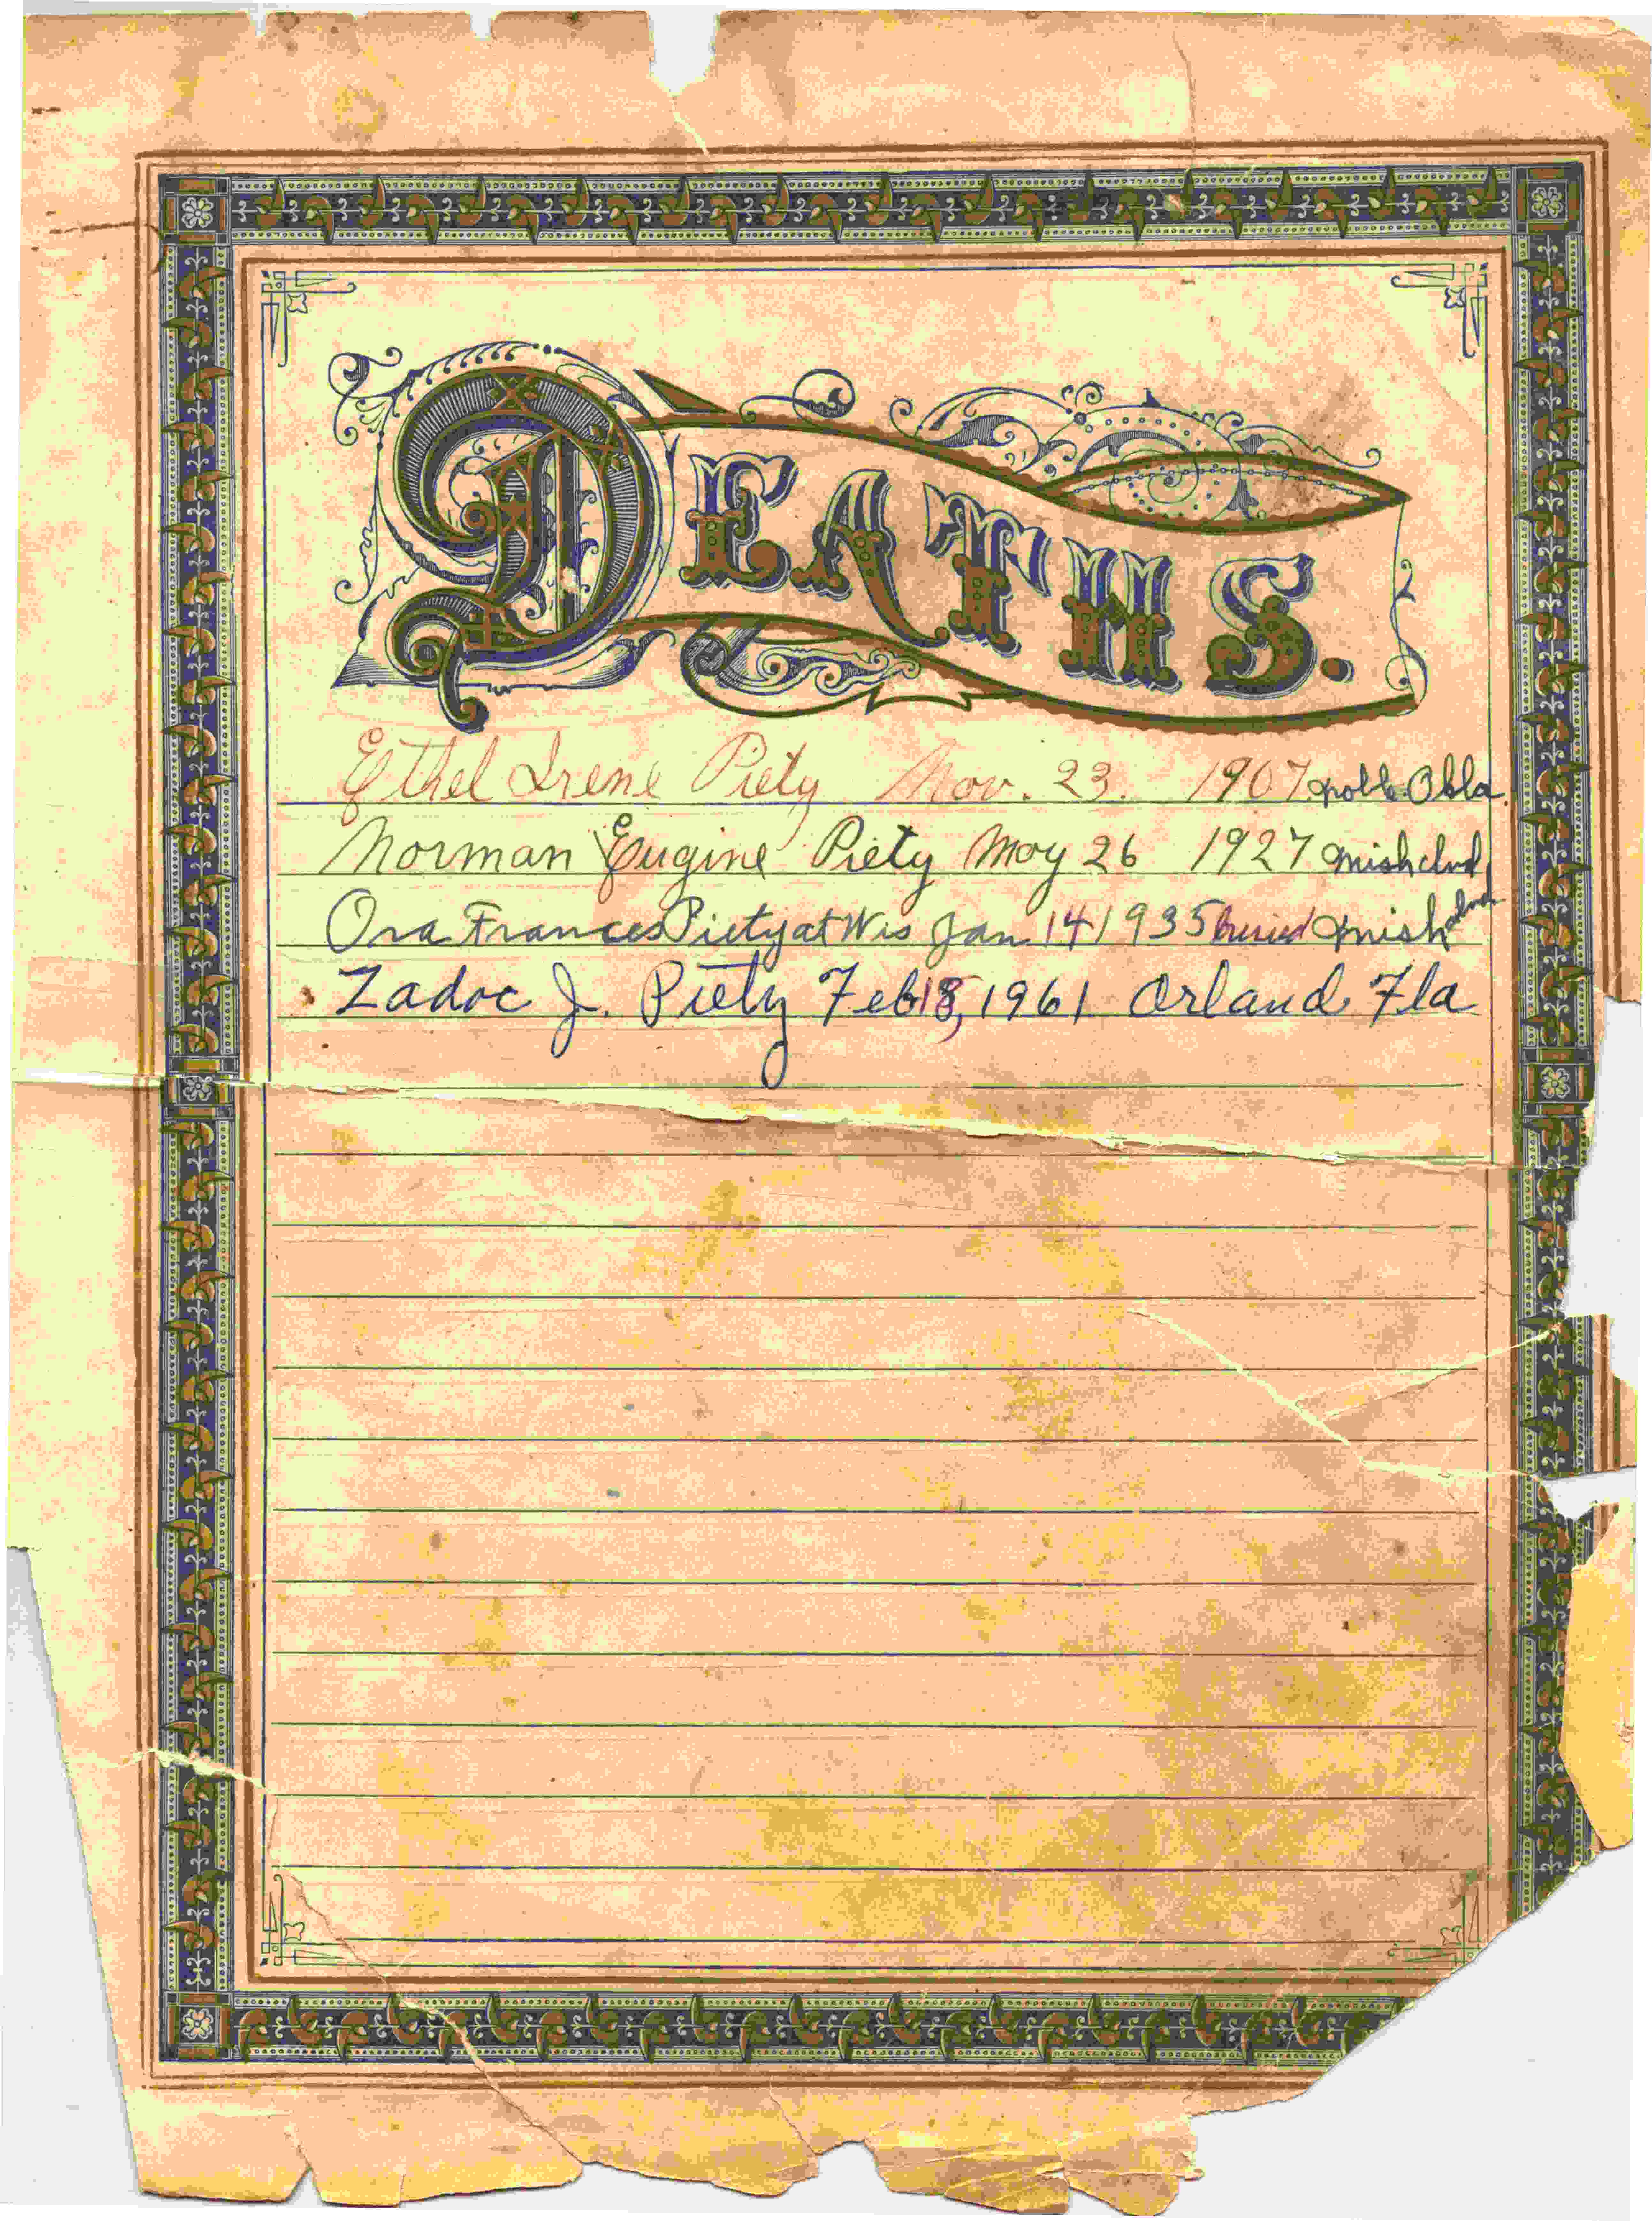 DEATHS.
Ethel Irene Piety Nov. 23. 1907 Noble Okla
Norman Eugine Piety May 26 1927 Mish Ind
Ora Frances Piety at Wis Jan 14 1935 buried Mish
Zadoc J. Piety Feb 18, 1961 Orland Fla